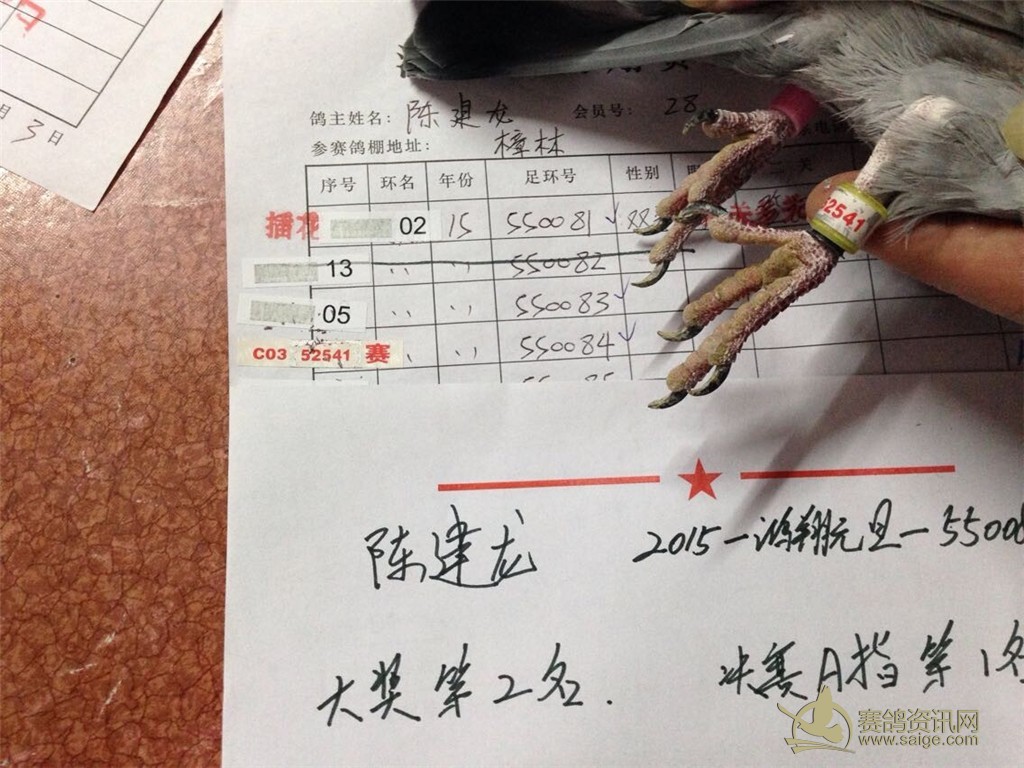 3日
鸽主姓名: 陈建龙 会员号: 28
参赛鸽棚地址: 樟林
序号 环名 年份 足环号 性别
插花 02 15 550081 ✓
13 〃 〃 550082
05 〃 〃 550083 ✓
C03 52541 赛 〃 〃 550084 ✓
52541
★
陈建龙 2015-鸿翔元旦-5500
大奖第2名. 决赛A指第1名
赛鸽资讯网
www.saige.com